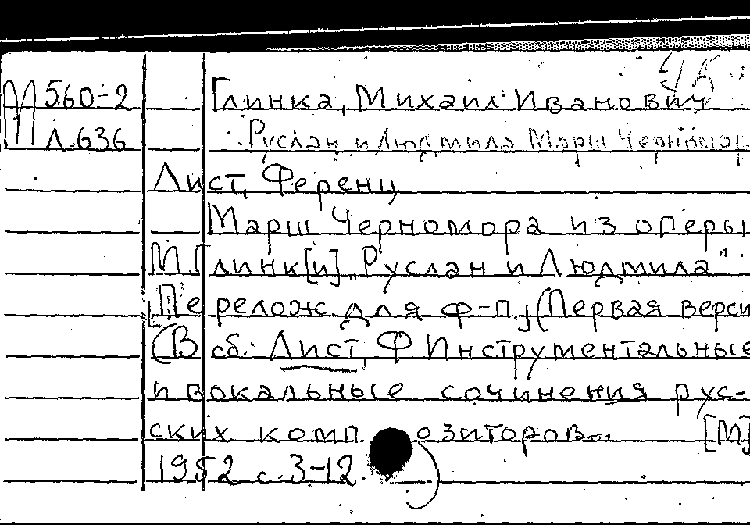 П 560-2 Глинка, Михаил Иванович
Л.636 Руслан и Людмила Марш Черномор
Лист, Ференц
Марш Черномора из оперы
М.Глинк[и] „Руслан и Людмила"
[Перелож. для ф-п.] (Первая верси
(В сб.: Лист, Ф Инструментальные
и вокальные сочинения рус-
ских композиторов... [М]
1952 с. 3-12.)